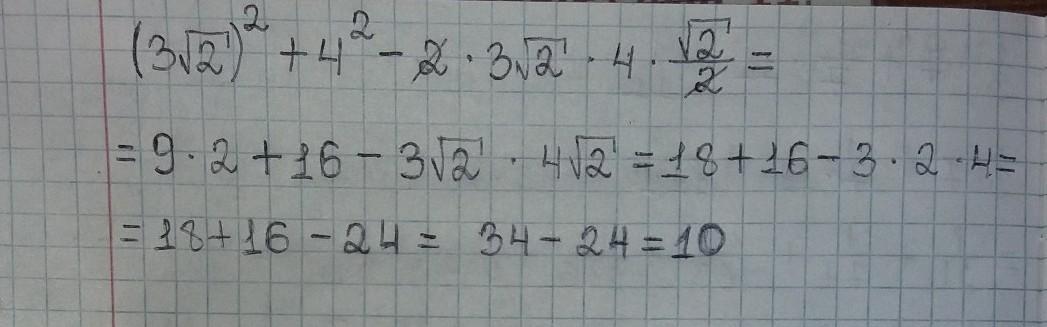 (3√2)² + 4² - 2 · 3√2 · 4 · √2/2 =
= 9 · 2 + 16 - 3√2 · 4√2 = 18 + 16 - 3 · 2 · 4 =
= 18 + 16 - 24 = 34 - 24 = 10